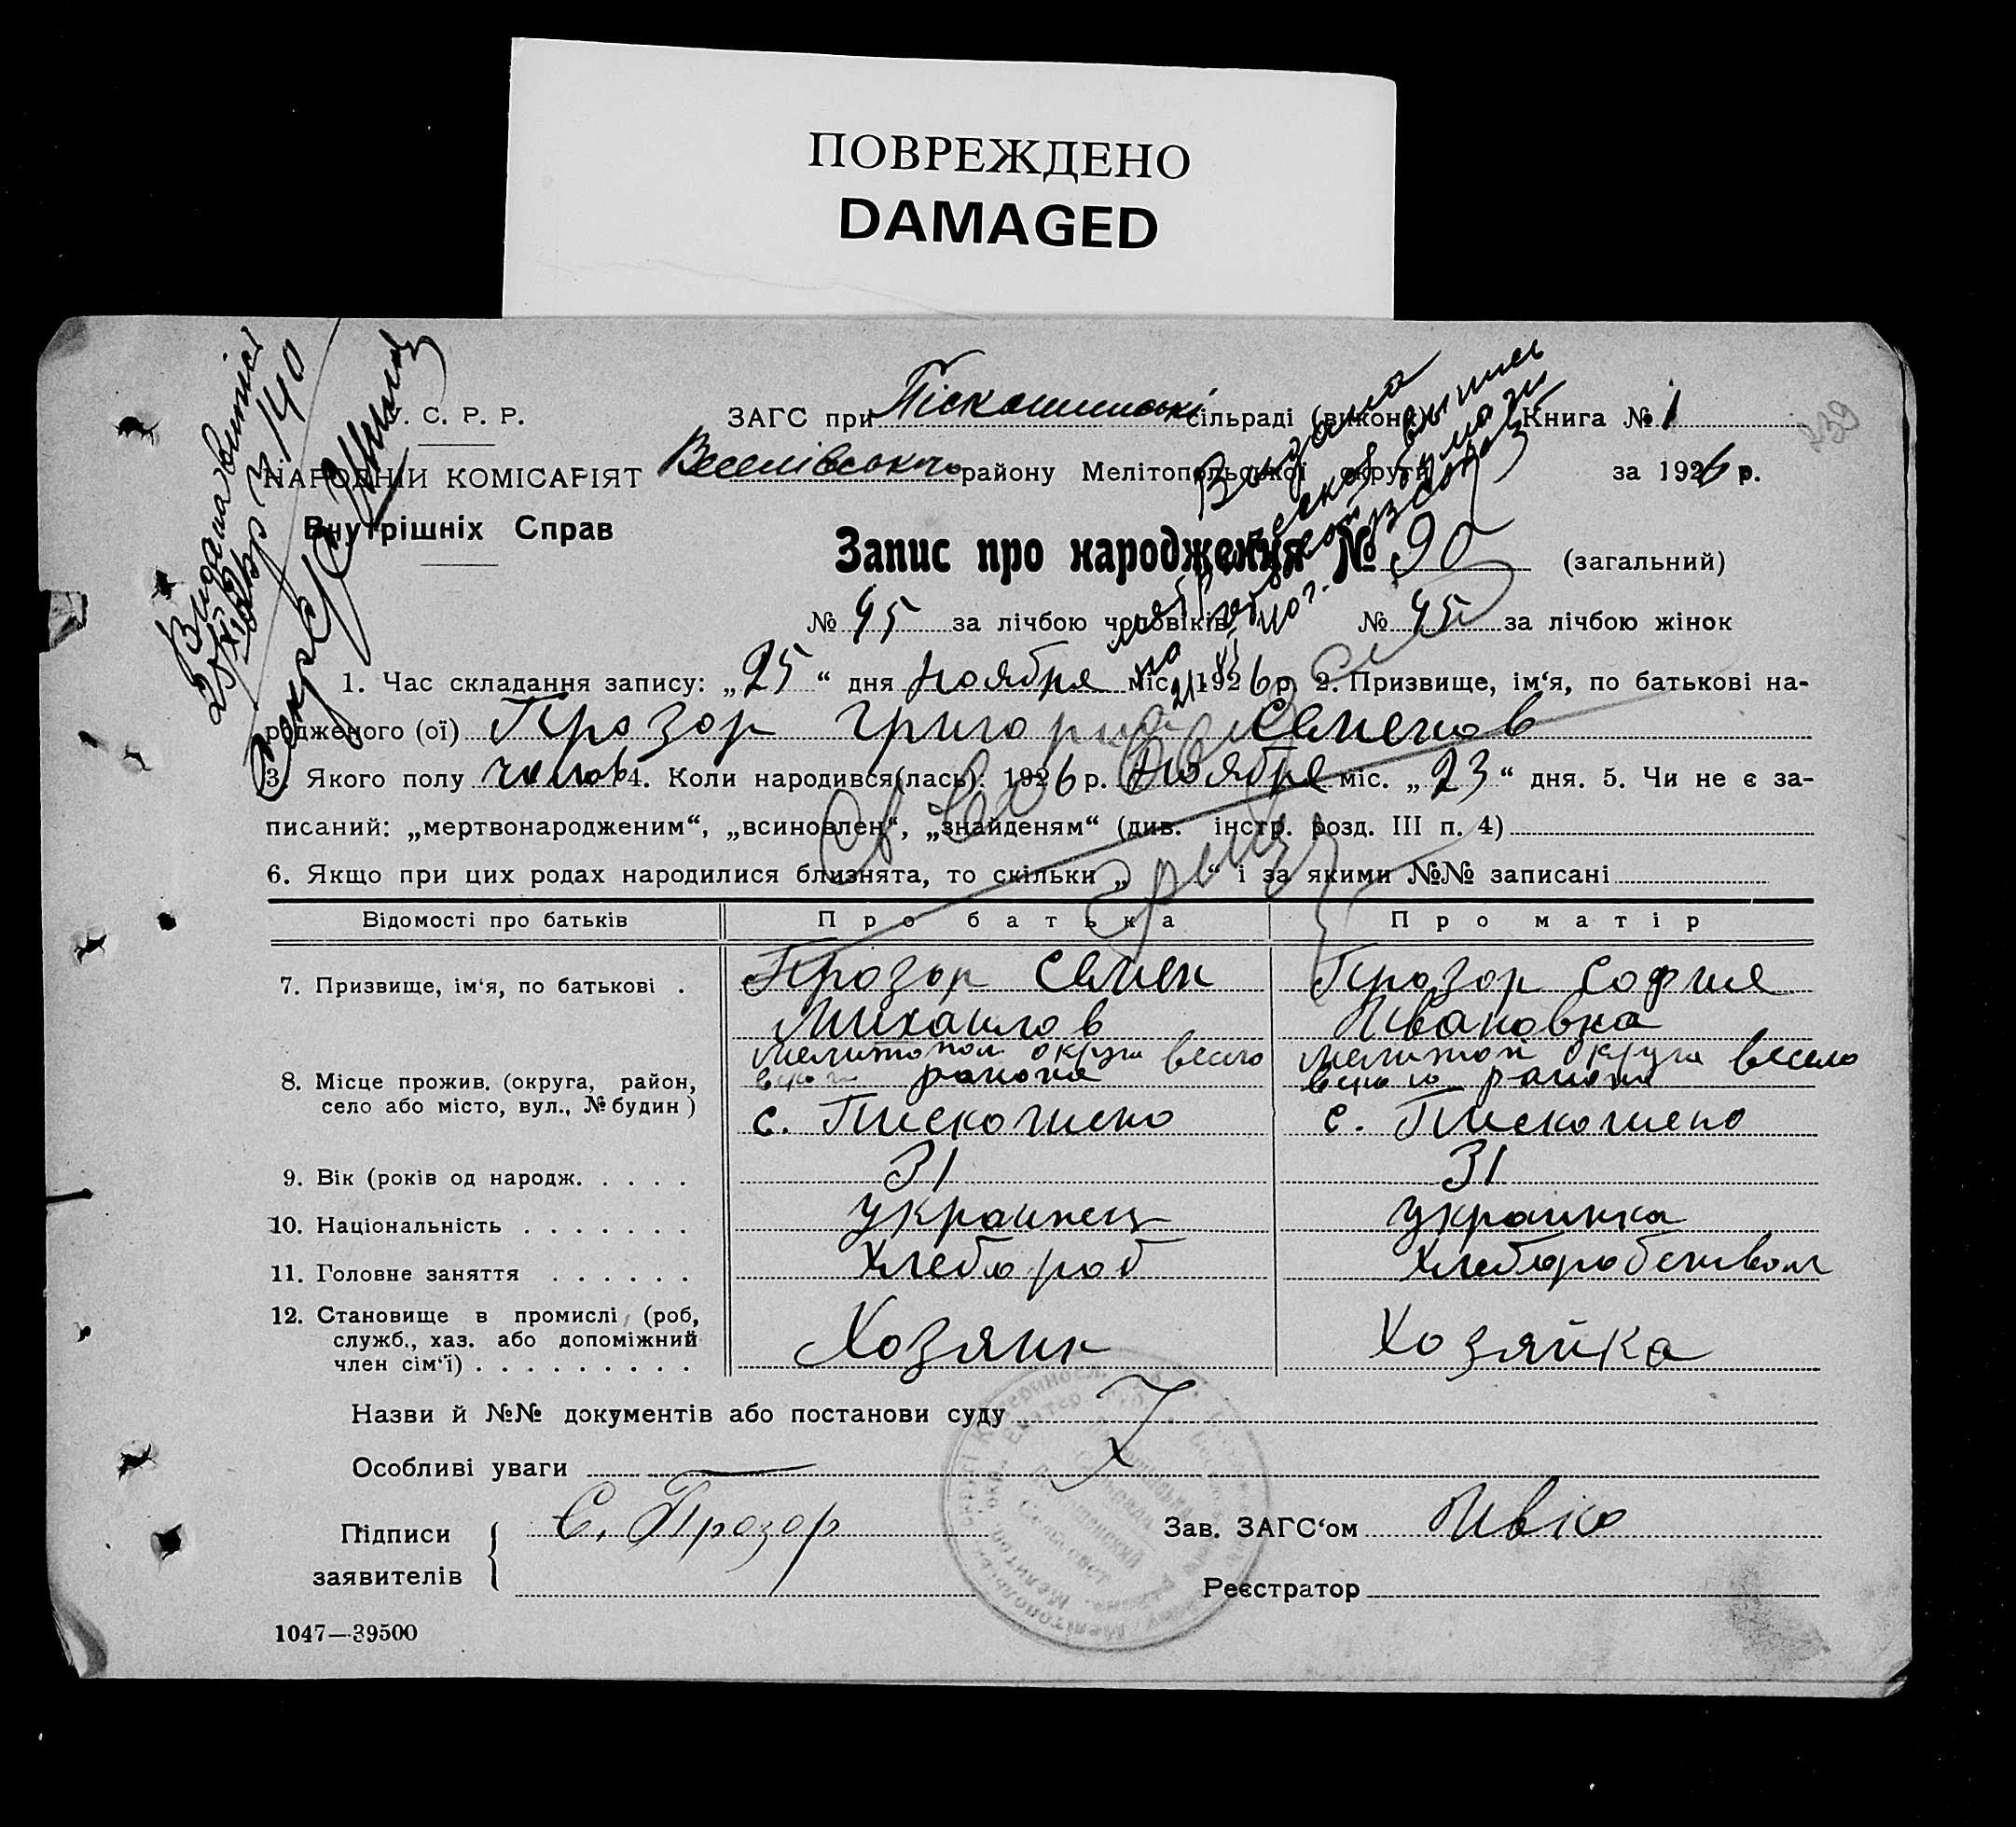 ПОВРЕЖДЕНО
DAMAGED
С. Р. Р.
НАРОДНІЙ КОМІСАРІЯТ
Внутрішніх Справ
ЗАГС при Піскошинській сільраді (викон Книга № 1
Веселівського району Мелітопольської округи за 1926 р.
239
Видана
Запис про народження № 90 (загальний)
№ 45 за лічбою чоловіків № 45 за лічбою жінок
1. Час складання запису: „25“ дня ноября міс. 1926 р. 2. Призвище, ім‘я, по батькові на-
родженого (ої) Прозор Григорий Семенов
3. Якого полу челов 4. Коли народився(лась): 1926 р. ноября міс. „23“ дня. 5. Чи не є за-
писаний: „мертвонародженим“, „всиновлен“, „знайденям“ (див. інстр. розд. III п. 4)
6. Якщо при цих родах народилися близнята, то скільки „ “ і за якими №№ записані
Відомості про батьків Про батька Про матір
7. Призвище, ім‘я, по батькові . Прозор Семен Прозор София
Михайлов Ивановна
Мелитопол округи весело Мелитоп округи весело
8. Місце прожив. (округа, район, района района
село або місто, вул., № будин) с. Пискошено с. Пискошено
9. Вік (років од народж. . . . . 31 31
10. Національність . . . . . . . украинец украинка
11. Головне заняття . . . . . . Хлебороб Хлеборобством
12. Становище в промислі (роб,
служб., хаз. або допоміжний Хозяин Хозяйка
член сім‘ї) . . . . . . . . .
Назви й №№ документів або постанови суду
Особливі уваги
Підписи С. Прозор Зав. ЗАГС‘ом
заявителів Реєстратор
1047—39500